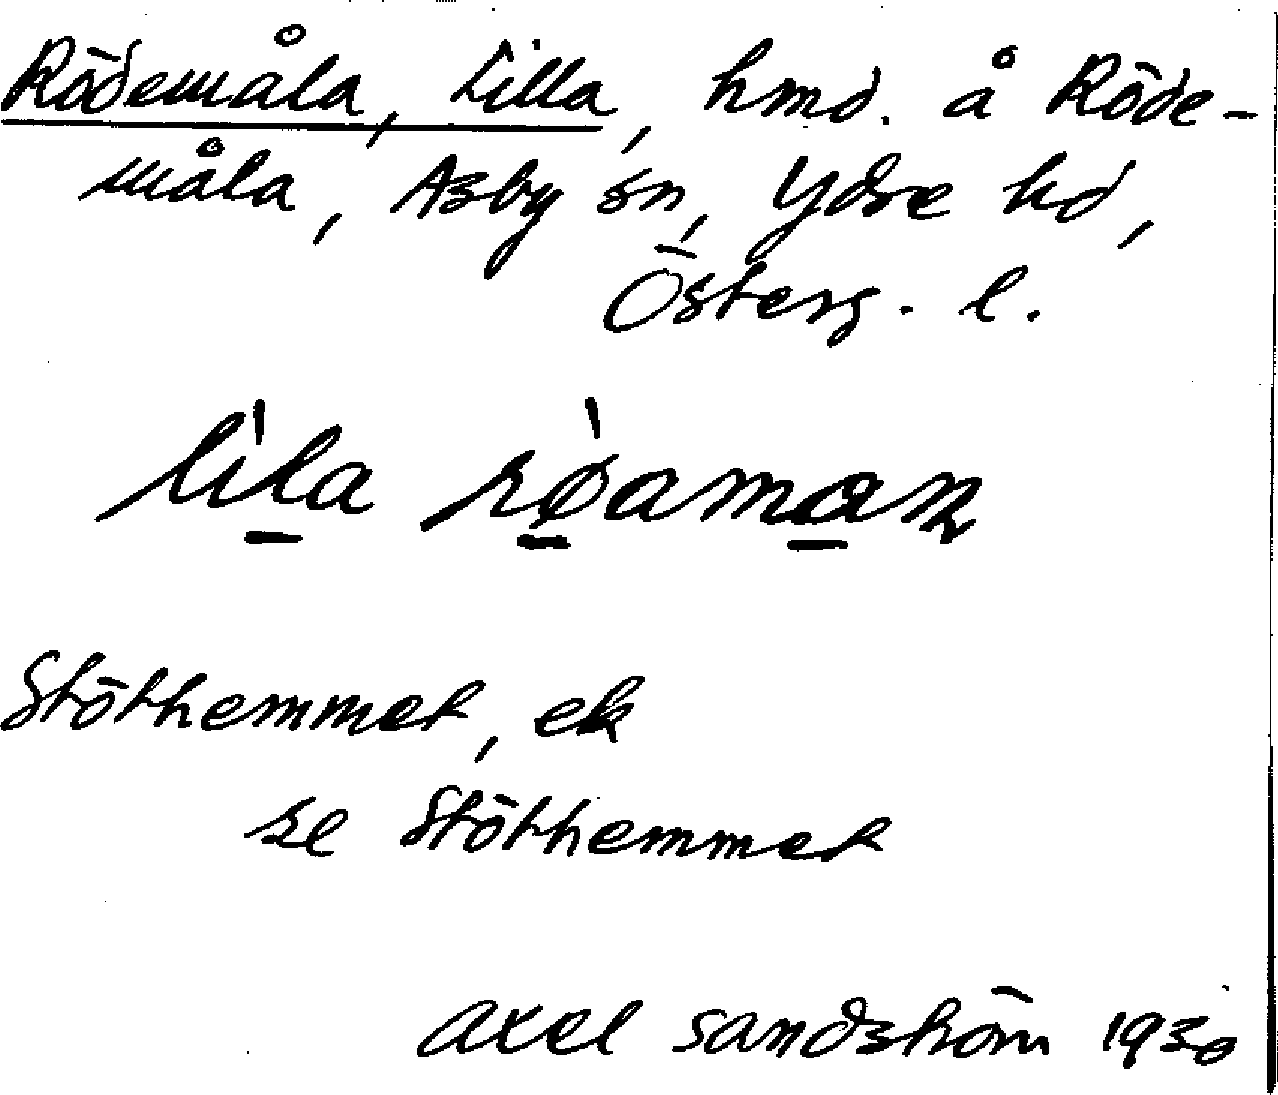 Rödemåla, Lilla, hmd. å Röde-
måla, Asby sn, Ydre hd,
Österg. l.
Stöthemmet, ek
se Stöthemmet
Axel Sandström 1930